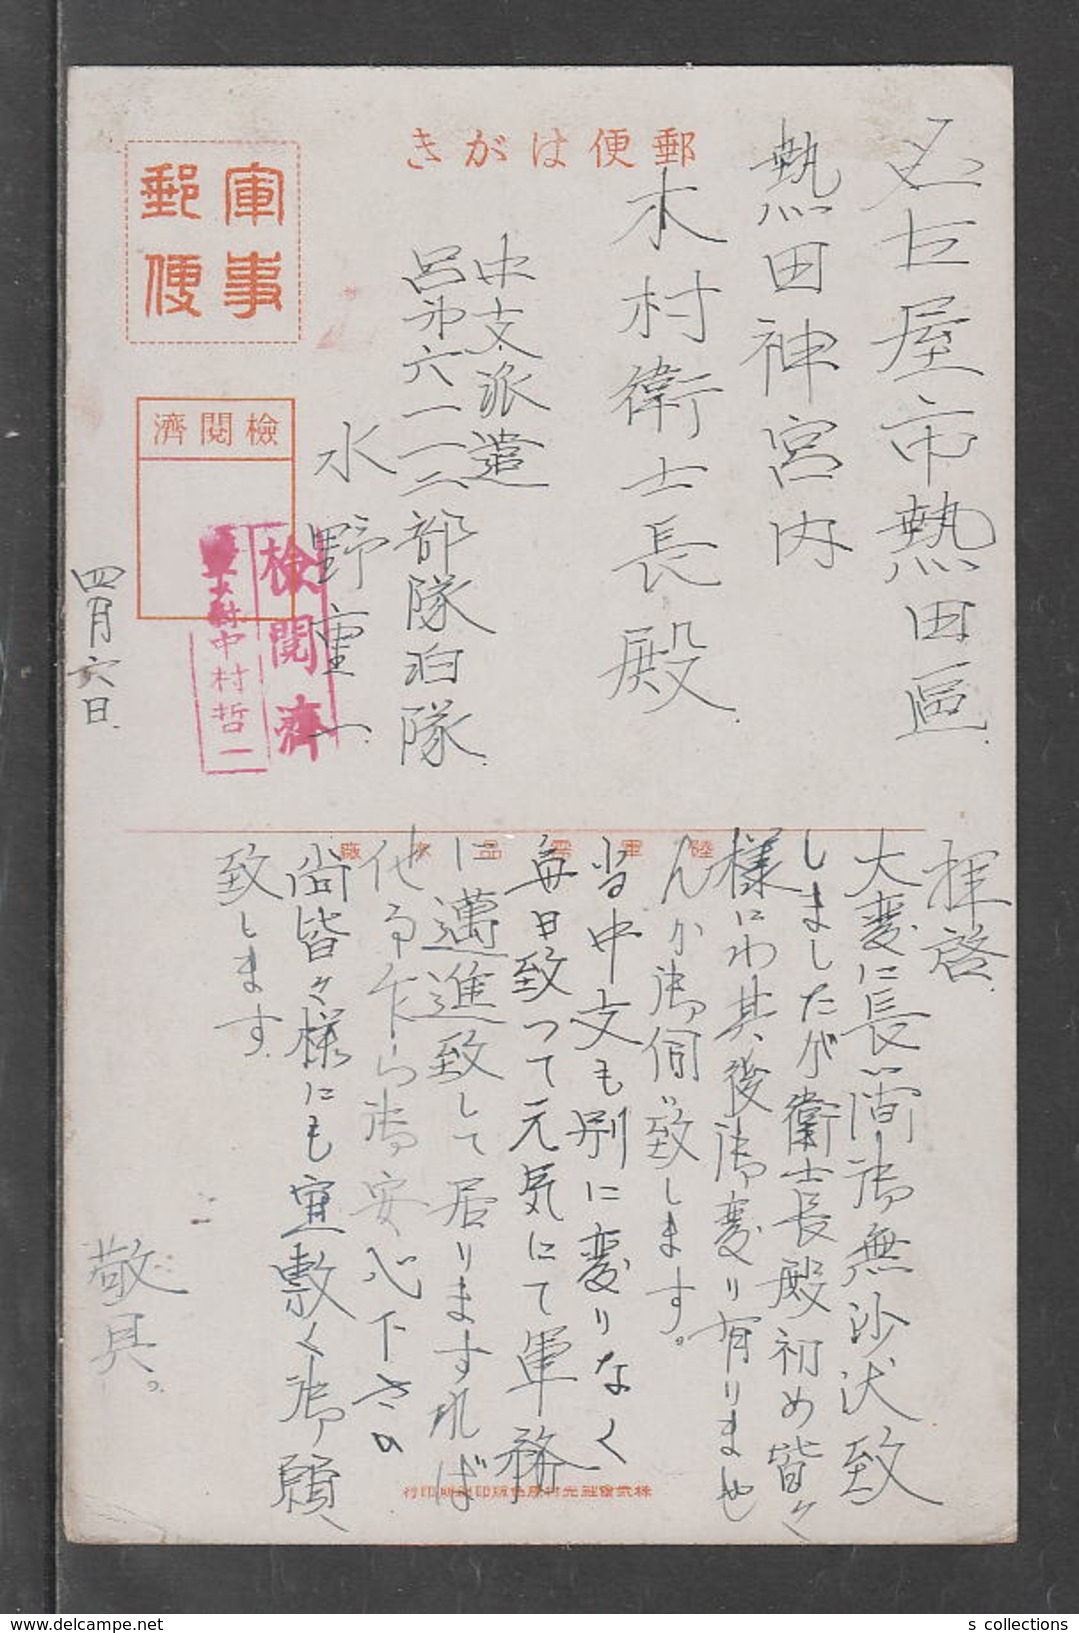 郵便はがき
軍事
郵便
検閲済
検閲濟
大尉中村哲二
名古屋市熱田區
熱田神宮内
木村衛士長殿
中支派遣
呂第六一一二部隊泊隊
水野重一
四月六日
拝啓
大変に長い間御無沙汰致
しましたが衛士長殿初め皆々
様にわ其後御変り有りませ
んか御伺い致します。
当中支も別に変りなく
毎日致つて元気にて軍務
に邁進致して居りますれば
他事乍ら御安心下さい
尚皆々様にも宜敷く御願
致します
敬具。
陸軍
品
廠
株式會社光村原色版印刷所印行
s collections